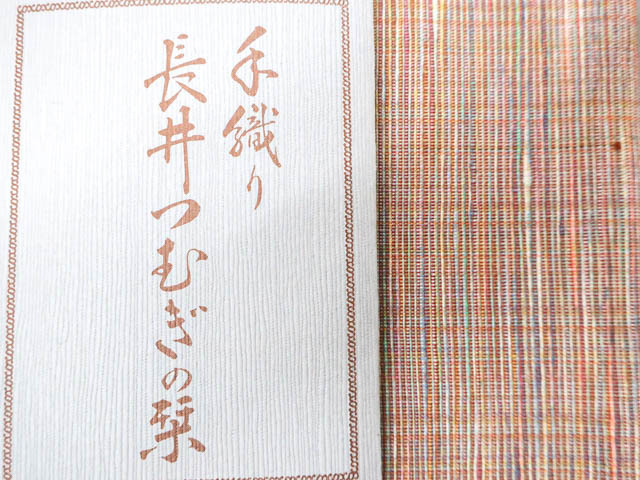 手織り
長井つむぎの栞